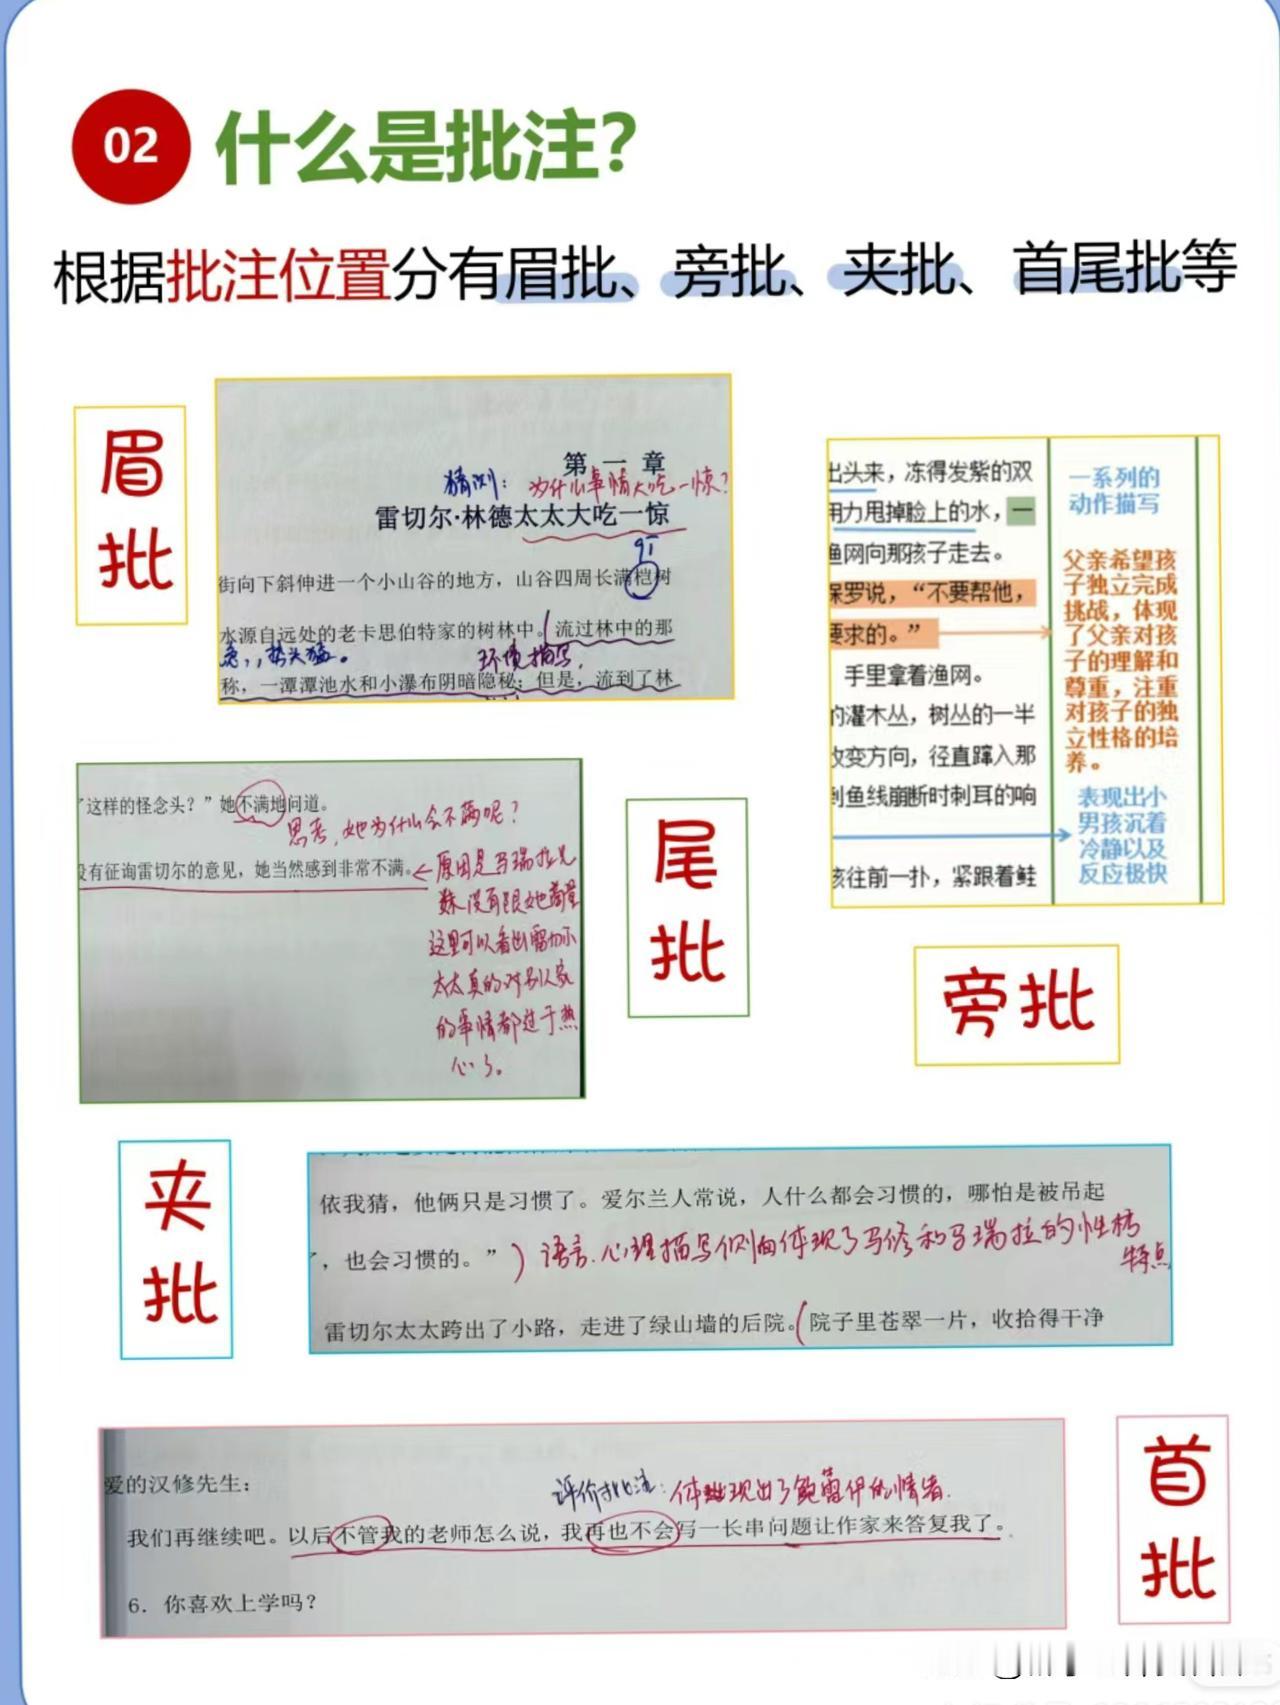 02 什么是批注？
根据批注位置分有眉批、旁批、夹批、首尾批等
眉批
第一章
猜测：为什么事情大吃一惊？
雷切尔·林德太太大吃一惊
街向下斜伸进一个小山谷的地方，山谷四周长满桤树
水源自远处的老卡思伯特家的树林中。流过林中的那
急，，势头猛。
环境描写，
称，一潭潭池水和小瀑布阴暗隐秘；但是，流到了林
出头来，冻得发紫的双
用力甩掉脸上的水，一
渔网向那孩子走去。
保罗说，“不要帮他，
要求的。”
手里拿着渔网。
的灌木丛，树丛的一半
改变方向，径直蹿入那
到鱼线崩断时刺耳的响
孩往前一扑，紧跟着鲑
一系列的
动作描写
父亲希望孩
子独立完成
挑战，体现
了父亲对孩
子的理解和
尊重，注重
对孩子的独
立性格的培
养。
表现出小
男孩沉着
冷静以及
反应极快
旁批
“这样的怪念头？”她不满地问道。
思考，她为什么会不满呢？
没有征询雷切尔的意见，她当然感到非常不满。
原因是马瑞拉兄
妹没有跟她商量
这里可以看出雷切尔
太太真的对别人家
的事情都过于热
心了。
尾批
夹批
依我猜，他俩只是习惯了。爱尔兰人常说，人什么都会习惯的，哪怕是被吊起
了，也会习惯的。”）语言.心理描写侧面体现了马修和马瑞拉的性格
特点
雷切尔太太跨出了小路，走进了绿山墙的后院。（院子里苍翠一片，收拾得干净
爱的汉修先生：
评价批注：体现出了鲍雷伊的情绪.
我们再继续吧。以后不管我的老师怎么说，我再也不会写一长串问题让作家来答复我了。
6．你喜欢上学吗？
首批